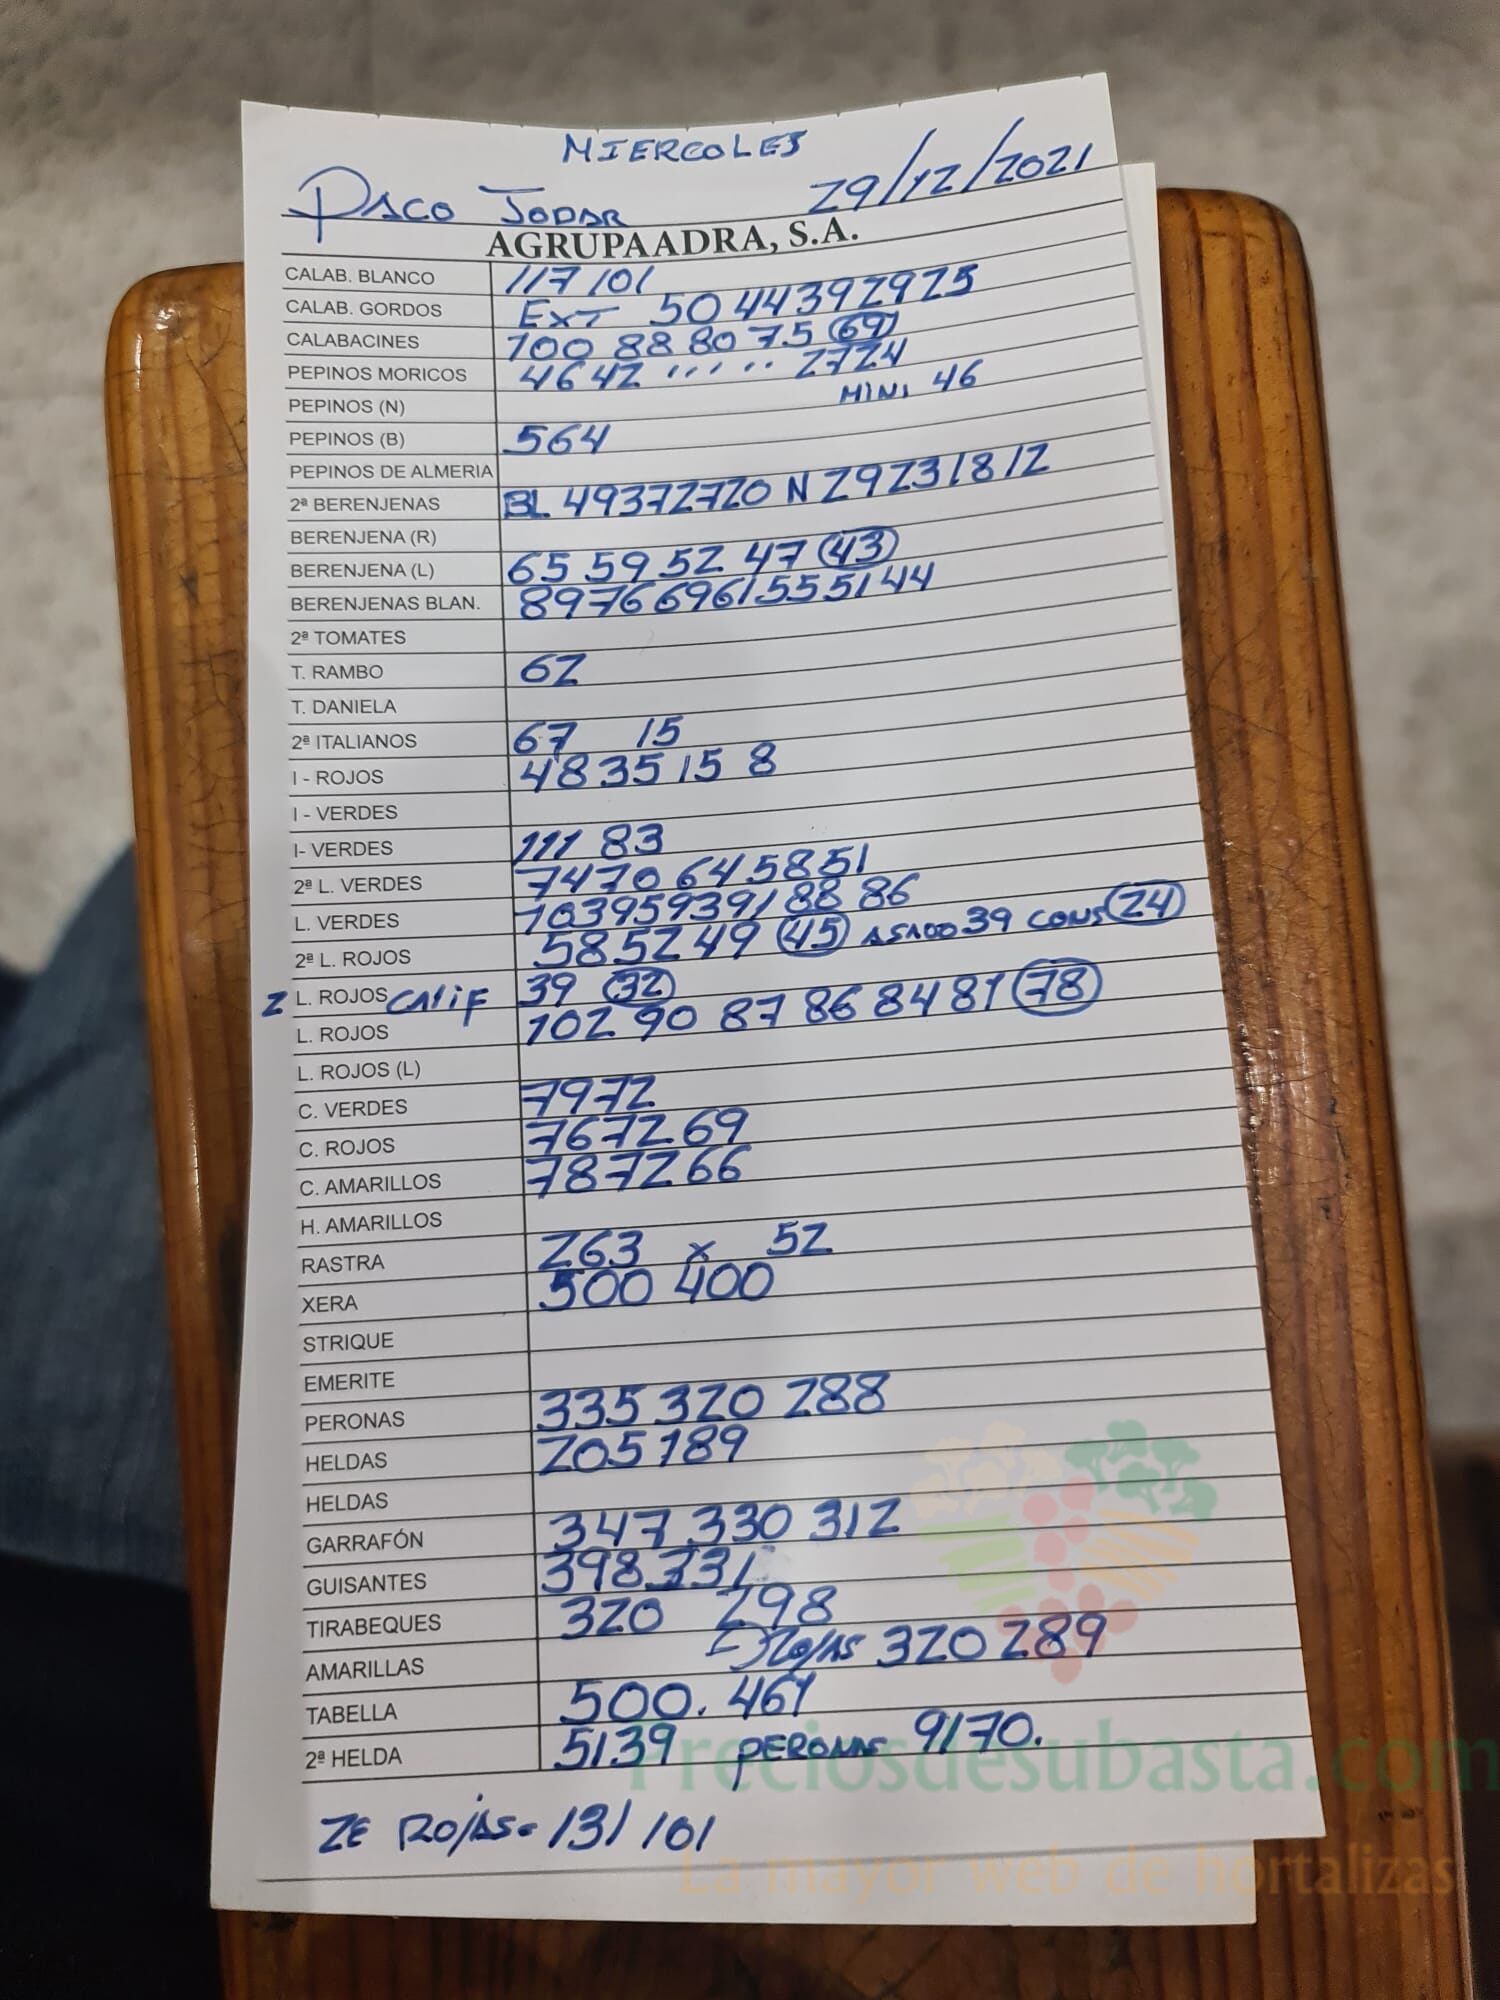 MIERCOLES
PACO JODAR 29/12/2021
AGRUPAADRA, S.A.
CALAB. BLANCO 117 101
CALAB. GORDOS EXT 50 44 39 29 25
CALABACINES 100 88 80 75 (69)
PEPINOS MORICOS 46 42 ,,, .. 27 24
PEPINOS (N) MINI 46
PEPINOS (B) 564
PEPINOS DE ALMERIA
2ª BERENJENAS BL 49 37 27 20 N 29 23 18 12
BERENJENA (R)
BERENJENA (L) 65 59 52 47 (43)
BERENJENAS BLAN. 89 76 69 61 55 51 44
2ª TOMATES
T. RAMBO 62
T. DANIELA
2ª ITALIANOS 67 15
I - ROJOS 48 35 15 8
I - VERDES
I- VERDES 111 83
2ª L. VERDES 74 70 64 58 51
L. VERDES 103 95 93 91 88 86
2ª L. ROJOS 58 52 49 (45) ASADO 39 CONS (24)
2 L. ROJOS CALIF 39 (32)
L. ROJOS 102 90 87 86 84 81 (78)
L. ROJOS (L)
C. VERDES 79 72
C. ROJOS 76 72 69
C. AMARILLOS 78 72 66
H. AMARILLOS
RASTRA 263 x 52
XERA 500 400
STRIQUE
EMERITE
PERONAS 335 320 288
HELDAS 205 189
HELDAS
GARRAFÓN 347 330 312
GUISANTES 398 331
TIRABEQUES 320 298
AMARILLAS ROJAS 320 289
TABELLA 500. 461
2ª HELDA 51 39 PERONAS 91 70.
2E ROJAS = 131 101
Preciosdesubasta.com
La mayor web de hortalizas